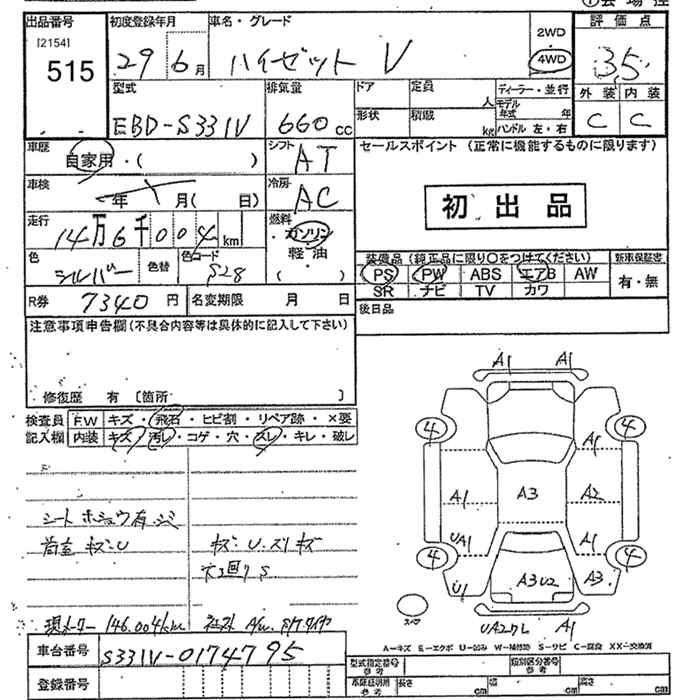 出品番号 初度登録年月 車名・グレード 2WD 評価点
[2154] 515 29 6月 ハイゼット V 4WD 3.5
型式 排気量 ドア 定員 人 ディーラー・並行 外装 内装
EBD-S331V 660cc 形状 積載 kg モデル年式 年 ハンドル 左・右 C C
車歴 自家用・( ) シフト AT セールスポイント (正常に機能するものに限ります)
車検 年 月( 日) 冷房 AC 初出品
走行 14万6千004km 燃料 ガソリン・軽油( )
色 シルバー 色替 色コード S28
装備品 (純正品に限り○をつけてください) 新車保証書
PS PW ABS エアB AW 有・無
SR ナビ TV カワ
R券 7340円 名変期限 月 日 後日品
注意事項申告欄(不具合内容等は具体的に記入して下さい)
修復歴 有〔箇所 〕
検査員 F.W キズ・飛石・ヒビ割・リペア跡・×要
記入欄 内装 キズ・汚レ・コゲ・穴・スレ・キレ・破レ
A1 A1
4 4
A1
A1 A3 A2
UA1 A1
4 4
U1 A3U2 A3
スペア A1
シート
キズ・U キズ U.スリキズ
S
現メーター 146.004km
A=キズ E=エクボ U=凹み W=補修跡 S=サビ C=腐食 XX=交換済
車台番号 S331V-0174795
登録番号
型式指定番号 参考 類別区分番号 参考
参考 長さ cm 幅 cm 高さ cm